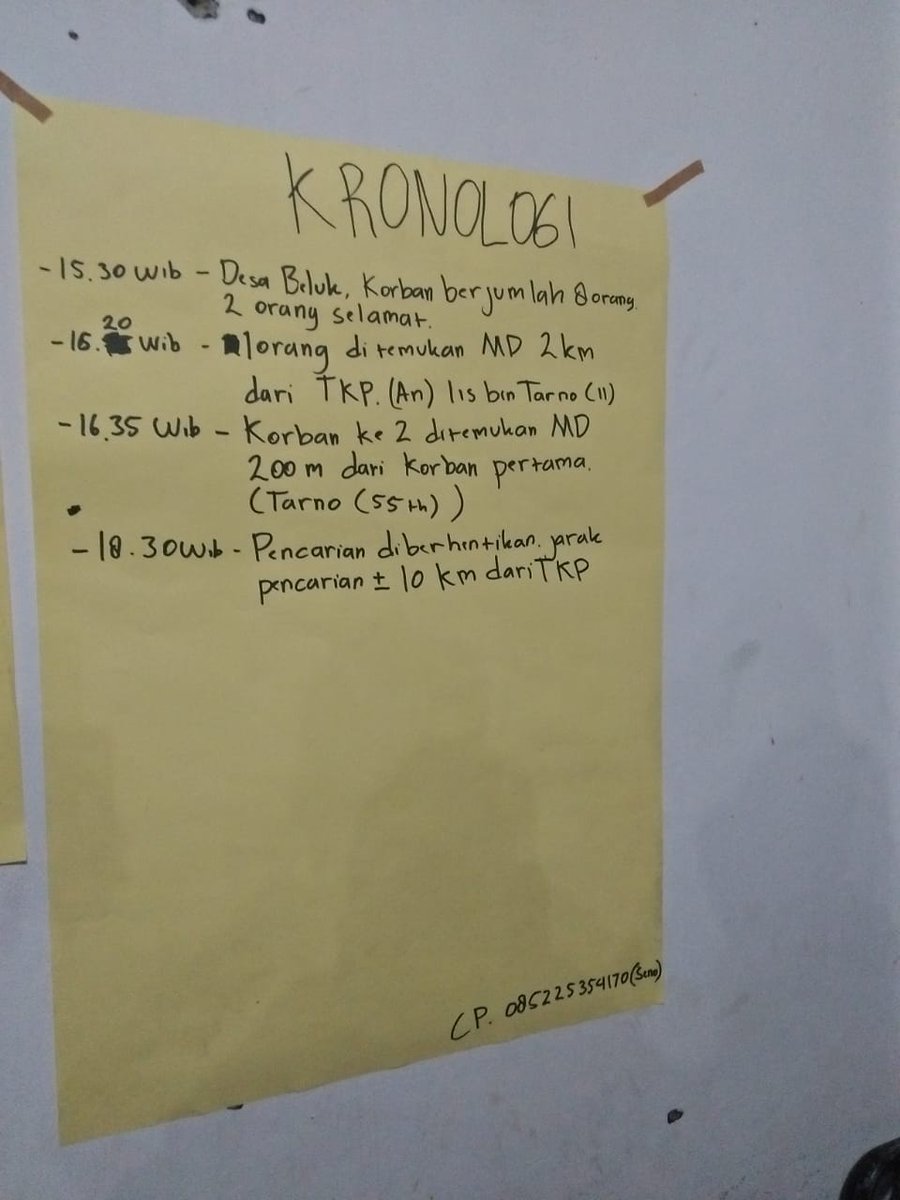 KRONOLOGI
- 15.30 Wib - Desa Beluk, Korban berjumlah 8 orang.
2 orang selamat.
- 16.20 Wib - 1 orang ditemukan MD 2 km
dari TKP. (An) Iis bin Tarno (11)
- 16.35 Wib - Korban ke 2 ditemukan MD
200 m dari korban pertama.
(Tarno (55 th))
- 18.30 Wib - Pencarian diberhentikan. jarak
pencarian ± 10 km dari TKP
CP. 085225354170 (Seno)